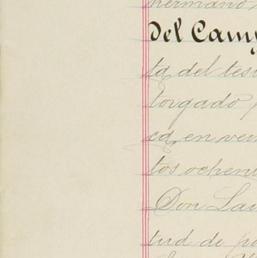 hermano
Del Camp
ta del tes
torgado
ed, en vein
tos ochen
Don Lau
tud de po